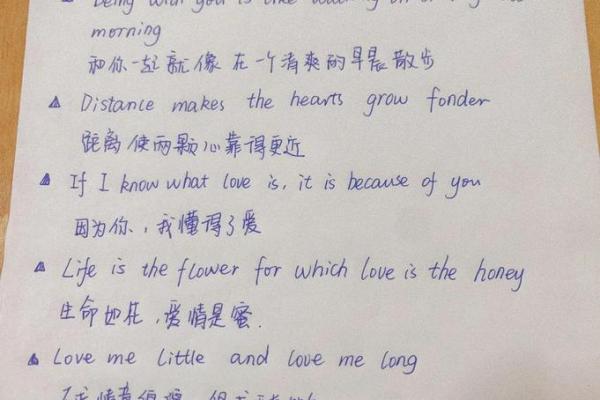 Being with you is like walking on
morning
和你一起就像在一个清爽的早晨散步
Distance makes the hearts grow fonder
距离使两颗心靠得更近
If I know what love is, it is because of you
因为你、我懂得了爱
Life is the flower for which love is the honey
生命如花，爱情是蜜.
Love me little and love me long